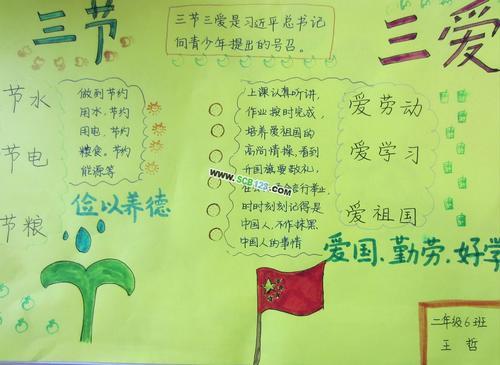 三节
三爱
三节三爱是习近平总书记
向青少年提出的号召。
节水
节电
节粮
做到节约
用水，节约
用电，节约
粮食。节约
能源等
俭以养德
上课认真听讲，
作业按时完成，
培养爱祖国的
高尚情操，看到
升国旗要敬礼，
时时刻刻记得是
中国人，不作抹黑
中国人的事情
www.SCB128.com
爱劳动
爱学习
爱祖国
爱国、勤劳、好学
二年级6班
王哲